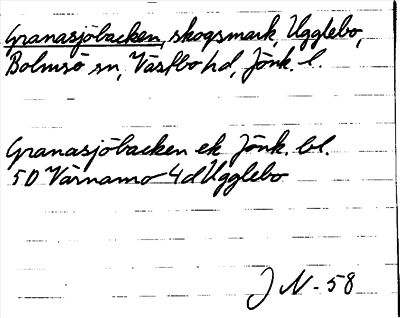 Granasjöbacken, skogsmark, Ugglebo,
Bolmsö sn, Västbo hd, Jönk. l.
Granasjöbacken ek Jönk. bl.
50 Värnamo 4d Ugglebo
J N-58